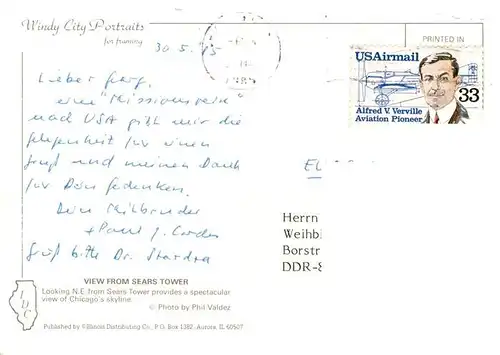 Windy City Portraits
for framing
PRINTED IN
30.5.85
USAirmail
33
Alfred V. Verville
Aviation Pioneer
Lieber
eine "Missionsreise"
nach USA gibt mir die
Gelegenheit für einen
Gruß und meinen Dank
für Dein Gedenken.
Dein Mitbruder
+ Paul J. Cordes
Grüß bitte Dr.
Herrn
Weihbi
Borstr
DDR-8
VIEW FROM SEARS TOWER
Looking N.E. from Sears Tower provides a spectacular
view of Chicago's skyline.
© Photo by Phil Valdez
IDC
Published by ©Illinois Distributing Co., P.O. Box 1382 - Aurora, Il. 60507